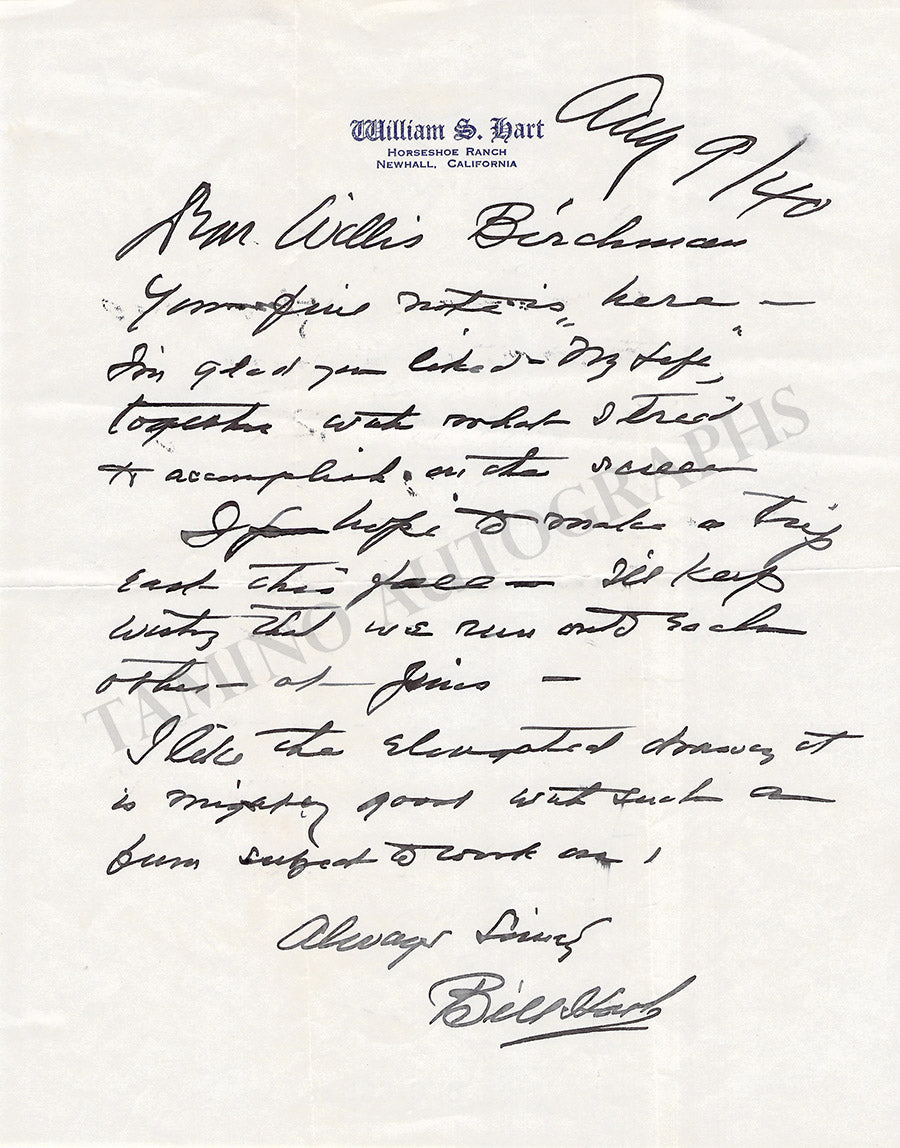 William S. Hart
HORSESHOE RANCH
NEWHALL, CALIFORNIA
Aug 9/40
Dear Willis Birchman
Your fine note is here —
I'm glad you liked — "My Life",
together with what I tried
to accomplish on the screen
I hope to make a trip
East this fall — I'll keep
that we run onto each
other at —
I like the drawing it
is mighty good with such a
bum subject to work on!
Always Sincerely
Bill Hart
TAMINO AUTOGRAPHS